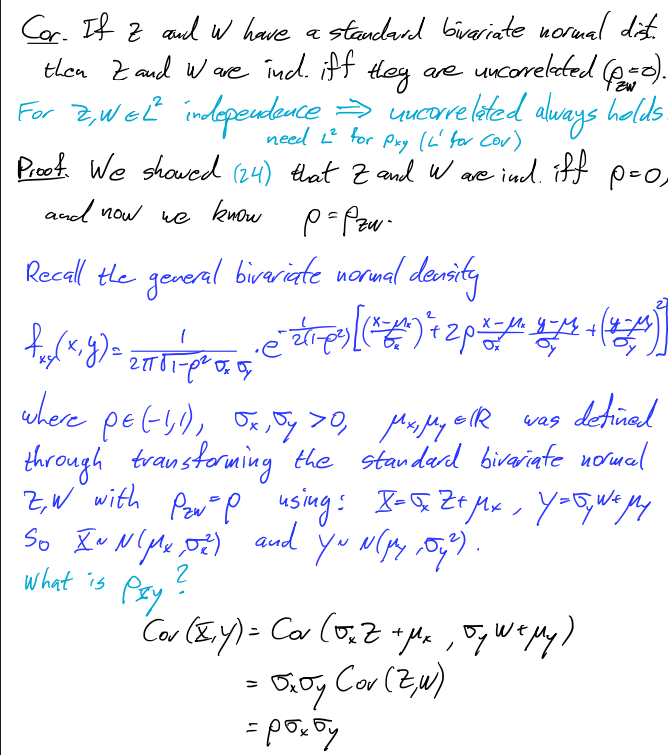 Cor. If Z and W have a standard bivariate normal dist.
then Z and W are ind. iff they are uncorrelated (ρ_ZW=0).
For Z,W∈L² independence ⇒ uncorrelated always holds.
need L² for ρ_XY (L¹ for Cov)
Proof. We showed (24) that Z and W are ind. iff ρ=0,
and now we know ρ=ρ_ZW.
Recall the general bivariate normal density
f_XY(x,y)= 1/(2π√(1-ρ²) σ_x σ_y) · e^{-1/(2(1-ρ²)) [((x-μ_x)/σ_x)² + 2ρ (x-μ_x)/σ_x (y-μ_y)/σ_y + ((y-μ_y)/σ_y)²]}
where ρ∈(-1,1), σ_x,σ_y >0, μ_x,μ_y∈ℝ was defined
through transforming the standard bivariate normal
Z,W with ρ_ZW=ρ using: X=σ_x Z+μ_x, Y=σ_y W+μ_y
So X~N(μ_x,σ_x²) and Y~N(μ_y,σ_y²).
What is ρ_XY?
Cov(X,Y)= Cov(σ_x Z+μ_x, σ_y W+μ_y)
= σ_x σ_y Cov(Z,W)
= ρσ_x σ_y